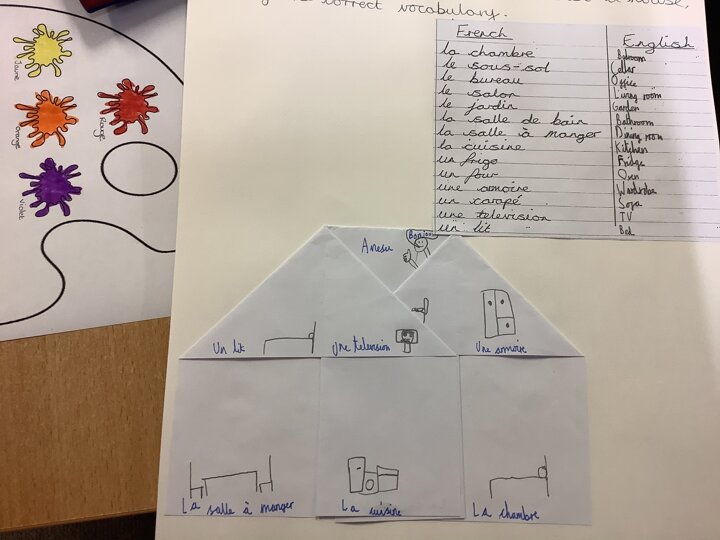 house,
correct vocabulary.
French English
la chambre Bedroom
le sous-sol Cellar
le bureau Office
le salon Living room
le jardin Garden
la salle de bain Bathroom
la salle à manger Dining room
la cuisine Kitchen
un frigo Fridge
un four Oven
une amoire Wardrobe
un canapé Sofa
une television TV
un lit Bed
Jaune
Orange
Rouge
Violet
Anesu
Bonjour
Un lit
Une
Une
La salle à manger
La cuisine
La chambre